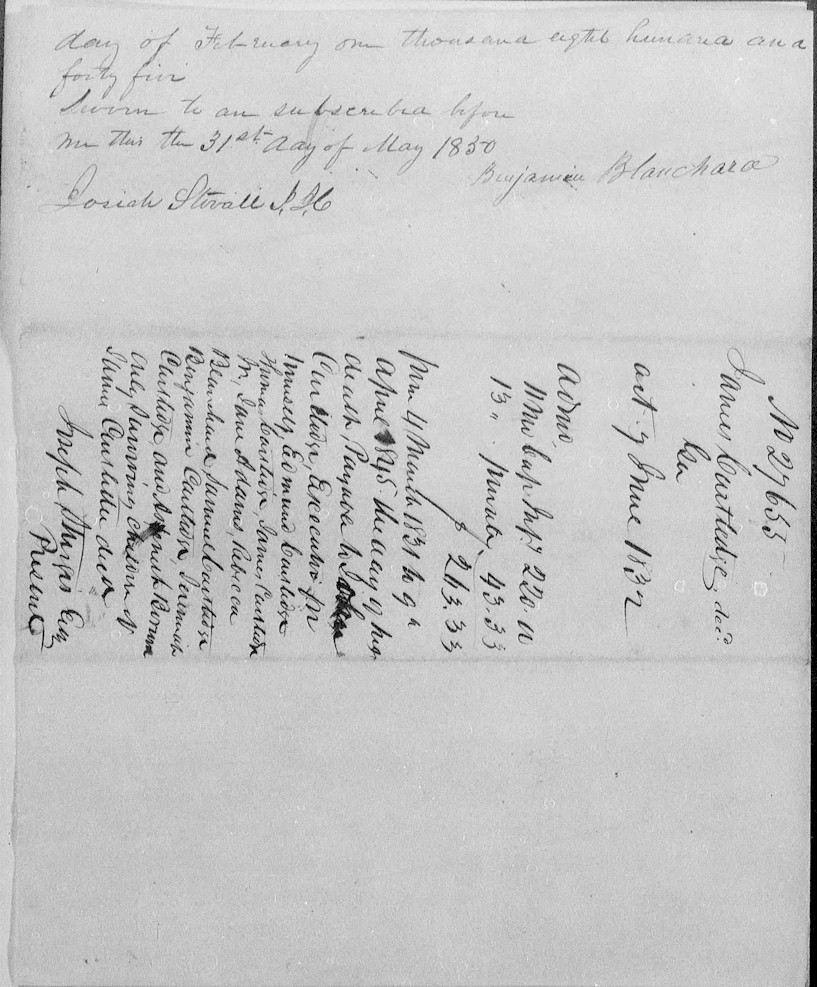 day of February one thousand eight hundred and
forty five
Sworn to an subscribed before
me this the 31st day of May 1850
Benjamin Blanchard
Josiah Stovall J.I.C
No 27655
James Cartledge, decd
Geo
act 7 June 1832
Admr
11 Mo Cap Inf 220.00
13 " Private, 43.33
$ 263.33
from 4 March 1831 to 9th
April 1845 the day of his
death, Payable to
Cartledge, Executor for
himself, Edmund Cartledge
James Cartledge
Jr, Jane Adams, Rebecca
Blanchard, Samuel Cartledge
Benjamin Cartledge, Jeremiah
Cartledge, and
only surviving children of
James Cartledge decd
Joseph Sturgis Esq
Present